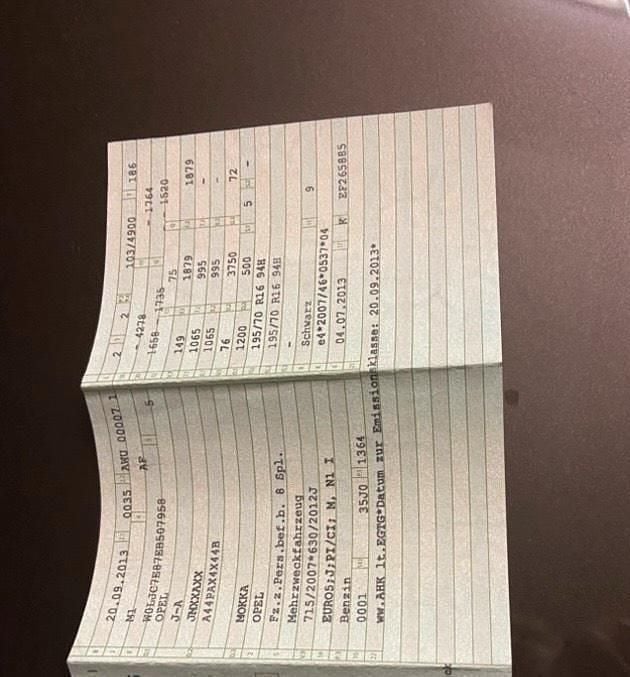 20.09.2013 0035 AWU 00007 1
M1 AF 5
W0LJC7E87EB507958
OPEL
J-A
JNXXAXX
A44PAX4X44B
MOKKA
OPEL
Fz.z.Pers.bef.b. 8 Spl.
Mehrzweckfahrzeug
715/2007*630/2012J
EURO5;J;PI/CI; M, N1 I
Benzin
0001 35J0 1364
ww.AHK lt.EGTG*Datum zur Emissionsklasse: 20.09.2013*
2 2 103/4900 186
- 4278 - 1764
1658 - 1735 - 1520
75
149 1879 1879
1065 995 -
1065 995 -
76 3750 72
1200 500 5 -
195/70 R16 94H
195/70 R16 94H
-
Schwarz 9
e4*2007/46*0537*04
04.07.2013 K EF265885
ok